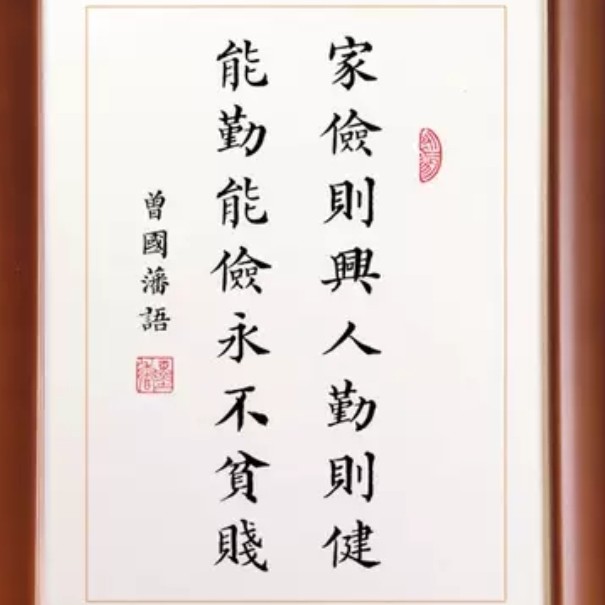 家儉則興人勤則健
能勤能儉永不貧賤
曾國藩語